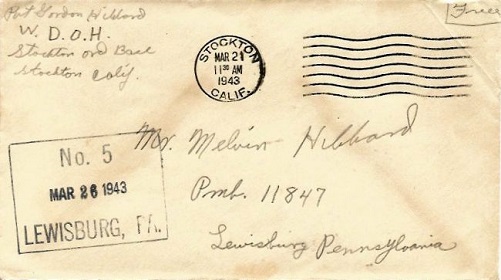 Pvt Gordon Hibbard
W. D. O. H.
Stockton ord Base
Stockton Calif.
Free
STOCKTON
MAR 21
11 30 AM
1943
CALIF.
No. 5
MAR 26 1943
LEWISBURG, PA.
Mr. Melvin Hibbard
Pmb. 11847
Lewisburg Pennsylvania